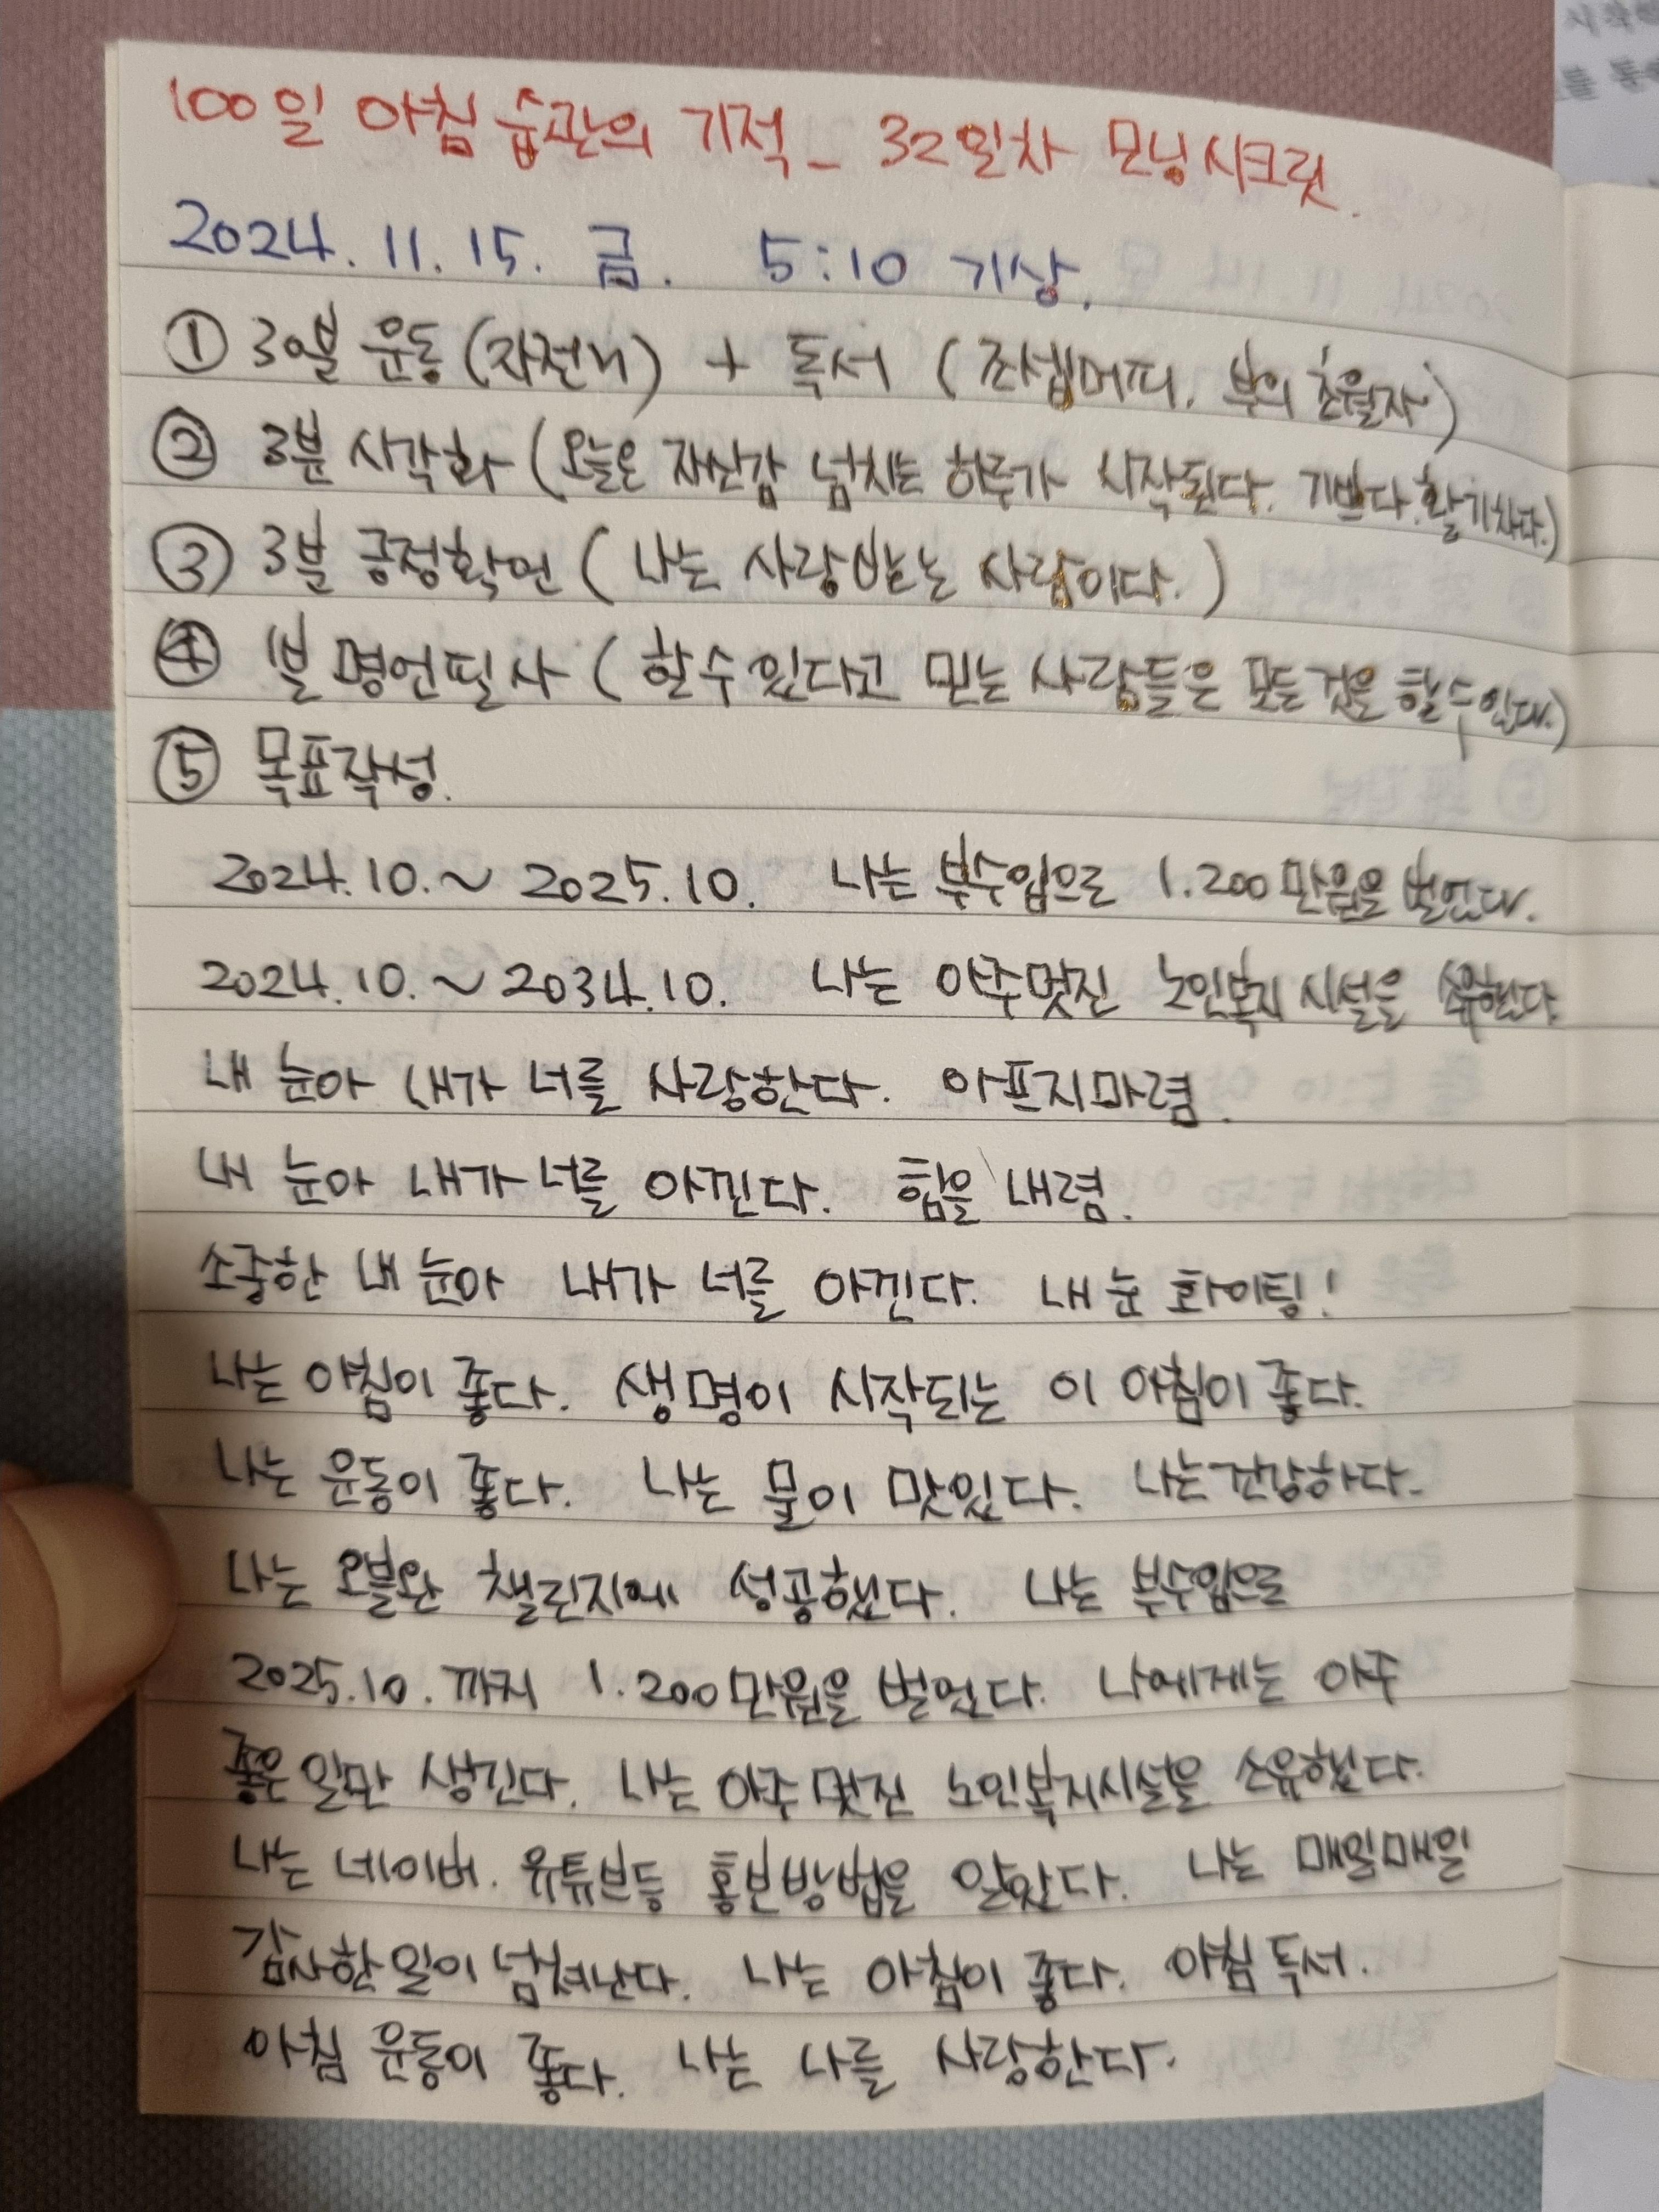 100일 아침 습관의 기적 _ 32일차 모닝시크릿.
2024. 11. 15. 금. 5:10 기상.
① 30분 운동 (자전거) + 독서 (조셉머피. 부의 초월자)
② 3분 시각화 (오늘은 자신감 넘치는 하루가 시작된다. 기쁘다. 활기차다.)
③ 3분 긍정확언 ( 나는 사랑받는 사람이다. )
④ 1분 명언필사 ( 할수 있다고 믿는 사람들은 모든것을 할수있다.)
⑤ 목표작성.
2024.10.~ 2025.10. 나는 부수입으로 1.200만원을 벌었다.
2024.10.~2034.10. 나는 아주멋진 노인복지 시설을 소유했다.
내 눈아 내가 너를 사랑한다. 아프지마렴.
내 눈아 내가 너를 아낀다. 힘을 내렴.
소중한 내 눈아 내가 너를 아낀다. 내눈 화이팅!
나는 아침이 좋다. 생명이 시작되는 이 아침이 좋다.
나는 운동이 좋다. 나는 물이 맛있다. 나는건강하다.
나는 오블완 챌린지에 성공했다. 나는 부수입으로
2025.10.까지 1.200만원을 벌었다. 나에게는 아주
좋은 일만 생긴다. 나는 아주 멋진 노인복지시설을 소유했다.
나는 네이버. 유튜브등 홍보방법을 알았다. 나는 매일매일
감사한 일이 넘쳐난다. 나는 아침이 좋다. 아침 독서.
아침 운동이 좋다. 나는 나를 사랑한다.